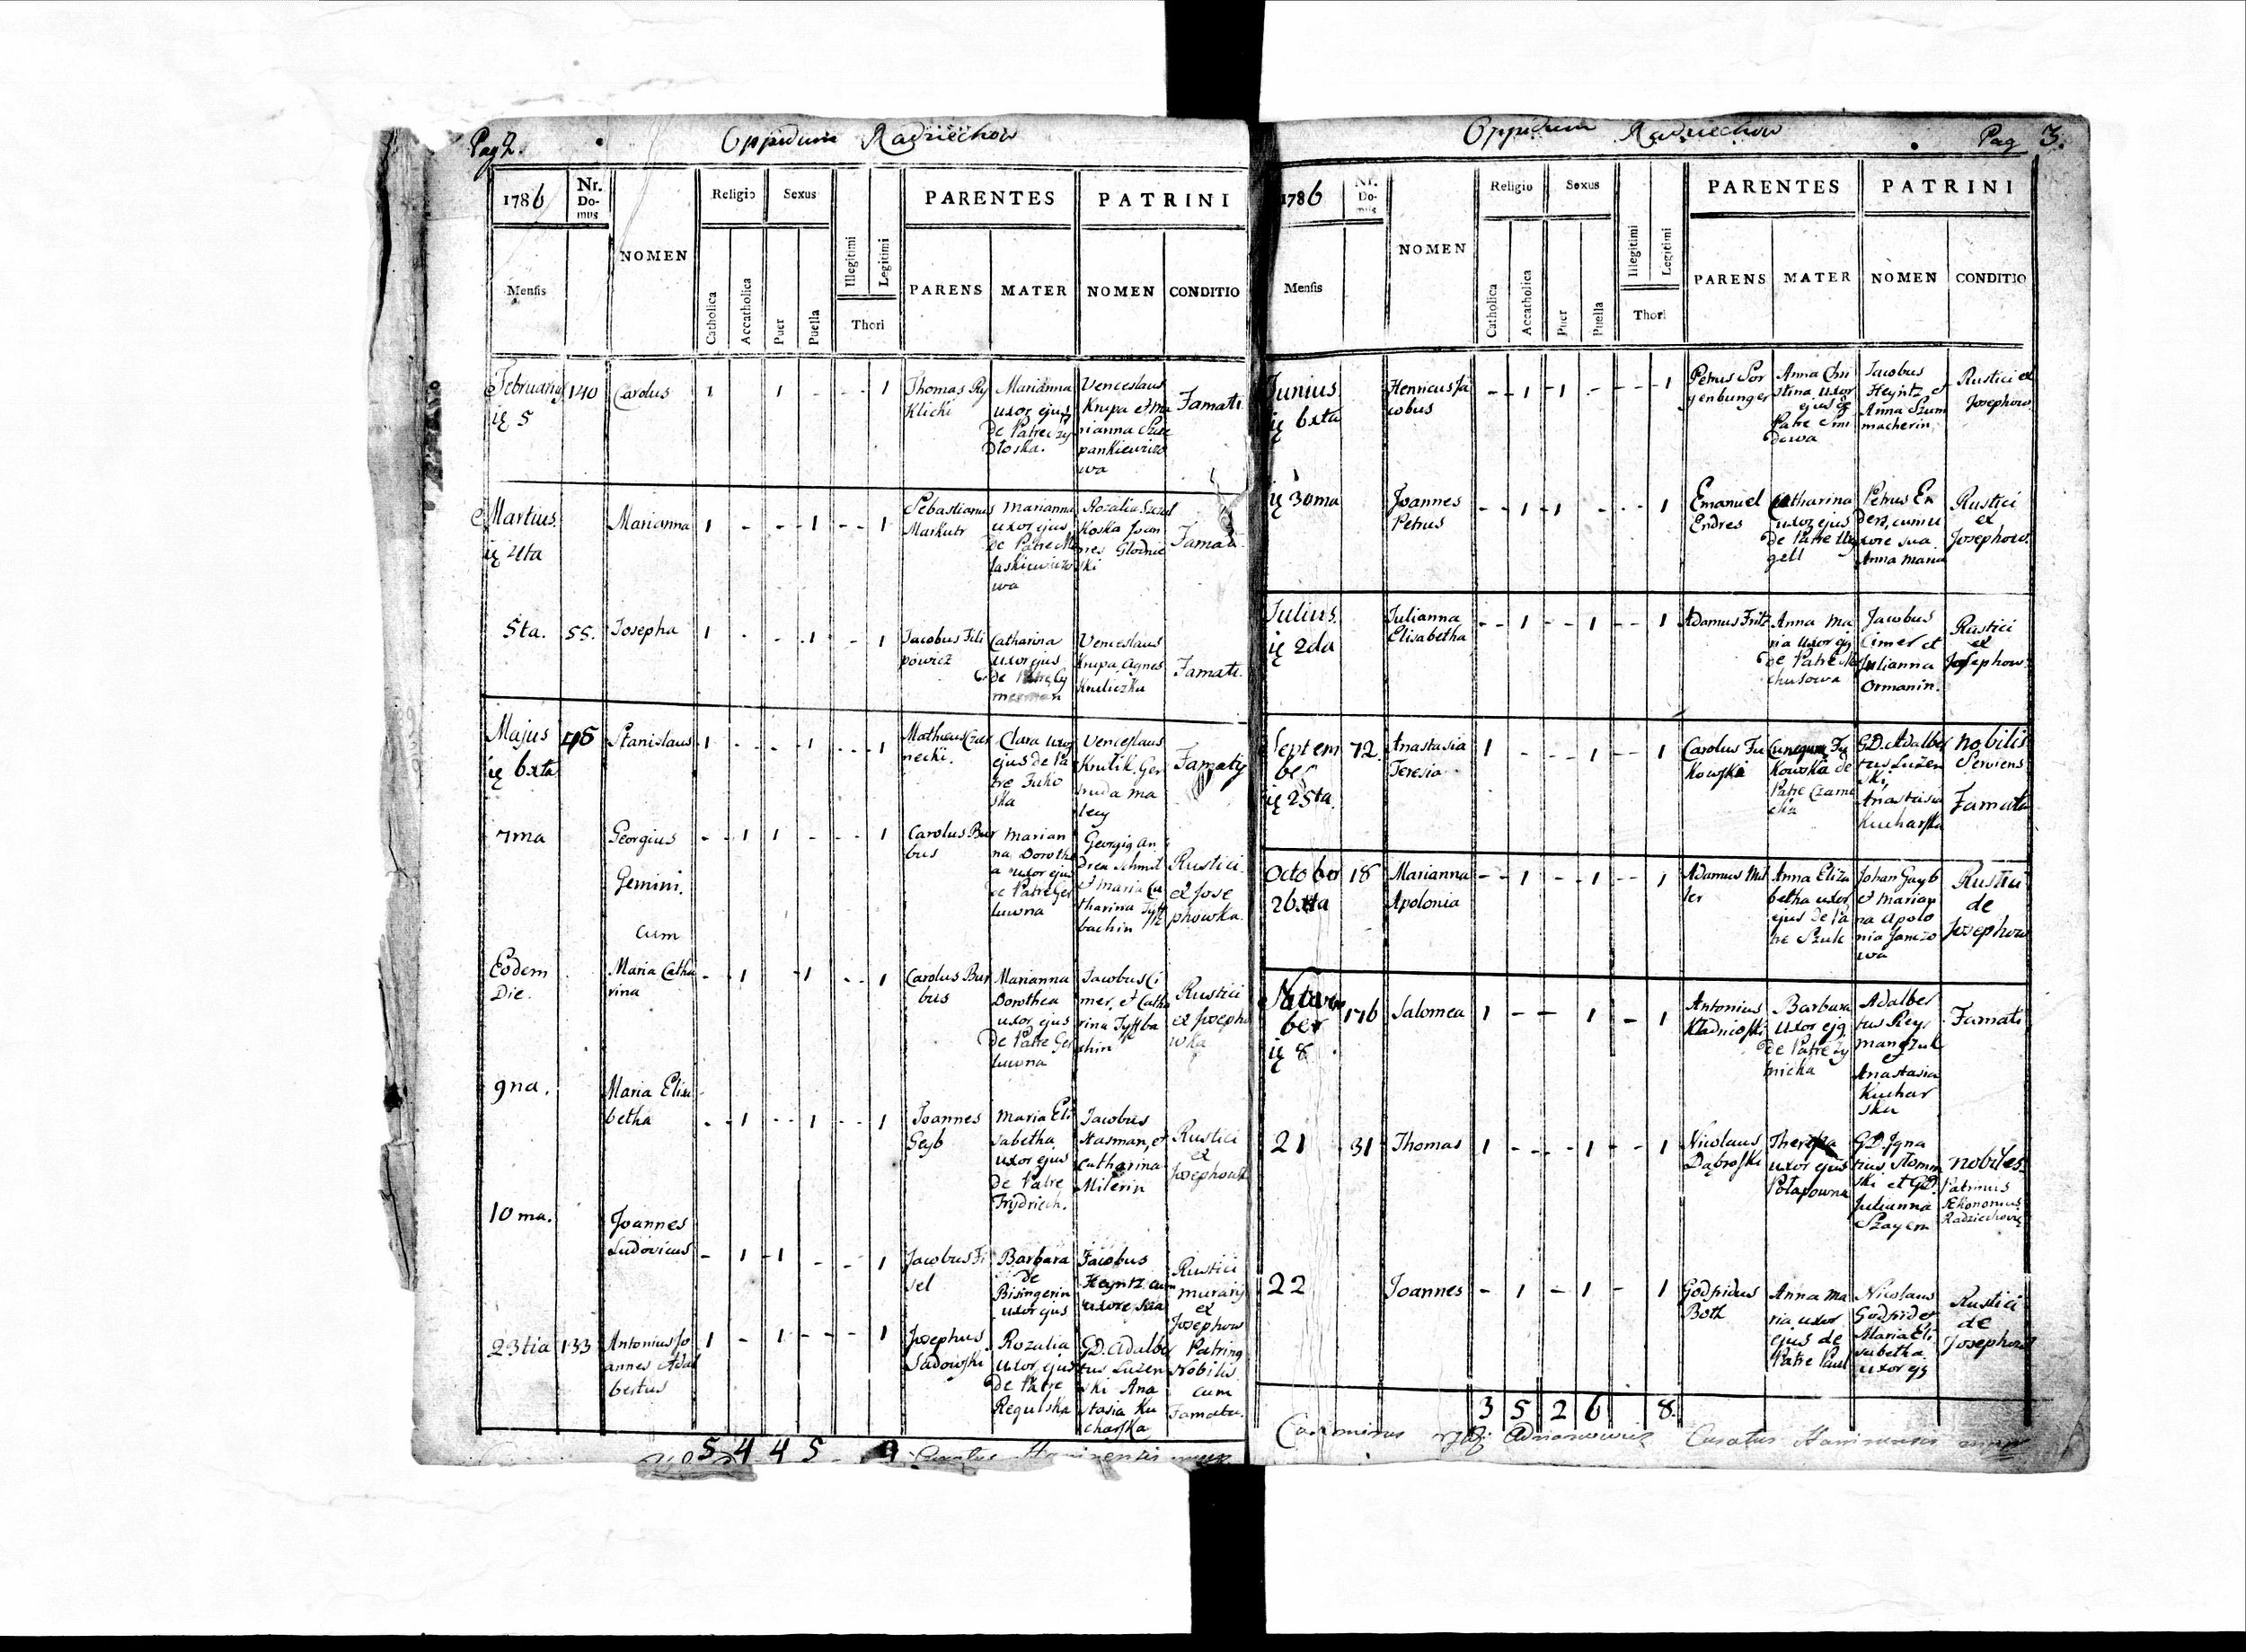 Pag 2.
Oppidum Radziechow
1786
Nr. Domus
NOMEN
Religio
Sexus
PARENTES
PATRINI
Mensis
Catholica
Accatholica
Puer
Puella
Illegitimi
Legitimi
Thori
PARENS
MATER
NOMEN
CONDITIO
140 Carolus 1 1 - - 1
Thomas Ry
klicki
Marianna
uxor ejus
de Patre Zy
Dłoska.
Venceslaus
Krupa et Ma
rianna
pankiewiczo
wa
Famati
Martius
Marianna 1 - - - 1 - - 1
Sebastianus
Markutr
Marianna
uxor ejus
de Patre
laskiewiczo
wa
Rozalia
koska Joan
nes Glodnie
ski
5ta. 55. Josepha 1 - - 1 - 1
Jacobus Fili
powicz
Catharina
uxor ejus
de Patre Cy
merman
Venceslaus
Krupa Agnes
Kruliczka
Famati.
Majus
48 Stanislaus 1 - - - 1 - - - 1
Matheus Czar
necki.
Clara uxor
ejus de Pa
tre Zuko
ska
Venceslaus
Krulik. Ger
truda Ma
ley
Famaty
7ma Georgius - - 1 1 - - - 1
Gemini.
cum
Carolus Bur
bus
Marian
na Doroth
a uxor ejus
de Patre Ger
luwna
Georgig An
drea Schmit
et Maria Ca
tharina
bachin
Rustici
ex Jose
phowka.
Eodem
Die.
Maria Catha
rina - 1 - 1 - - 1
Carolus Bur
bus
Marianna
Dorothea
uxor ejus
de Patre Ger
luwna
Jacobus Ci
mer, et Catha
rina
chin
Rustici
ex Josepho
wka
9na. Maria Elisa
betha - - 1 - - 1 - - 1
Joannes
Geyb
Maria Eli
sabetha
uxor ejus
de Patre
Frydrich.
Jacobus
Hasman, et
Catharina
Milerin
Rustici
ex
10ma. Joannes
Ludovicus - 1 - 1 - - - 1
Jacobus Fi
sel
Barbara
de
Bisingerin
uxor ejus
Jacobus
Heyntz cum
uxore sua
Rustici
murarij
ex
Josephow
23tia 133 Antonius Jo
annes Adal
bertus 1 - 1 - - - 1
Josephus
Sadowski
Rozalia
uxor ejus
de Patre
Regulska
GD. Adalber
tus Luzen
ski Ana
stasia Ku
charska
Nobilis
cum
Famata.
5 4 4 5 - 9 Curatus
Oppidum Radziechow
Pag 3.
1786
Nr. Domus
NOMEN
Religio
Sexus
PARENTES
PATRINI
Mensis
Catholica
Accatholica
Puer
Puella
Illegitimi
Legitimi
Thori
PARENS
MATER
NOMEN
CONDITIO
Junius
Henricus Ja
cobus - - 1 - 1 - - - 1
Petrus Sor
genburger
Anna Chri
stina uxor
ejus de
Patre Smi
dowa
Jacobus
Heyntz et
Anna Szum
macherin
Rustici ex
Josephow
30ma Joannes
Petrus - - 1 - 1 - - - 1
Emanuel
Endres
Catharina
uxor ejus
de Patre
gell
Petrus En
ders, cum u
xore sua
Anna Maria
Rustici
ex
Josephow.
Julius.
2da
Julianna
Elisabetha - - 1 - - 1 - - 1
Adamus Fritz
Anna Ma
ria uxor ejg
de Patre
chusowa
Jacobus
Cimer et
Julianna
Ormanin.
Rustici
ex
Josephow
Septem
ber
25ta
72. Anastasia
Teresia 1 - - - 1 - - 1
Carolus Zu
kowski
Cunegun Zu
kowska de
Patre Czarne
cka
GD. Adalber
tus Luzen
ski,
Anastasia
Kucharska
Nobilis
Serviens
Famata
October
26xta
18 Marianna
Apolonia - - 1 - - 1 - - 1
Adamus Mil
ler
Anna Eliza
betha uxor
ejus de Pa
tre Szulc
Johan Gayb
et Marian
na Apolo
nia
wa
Rustici
de
Josephow
ber
8
176 Salomea 1 - - 1 - 1
Antonius
Barbara
uxor ejg
de Patre Zy
micka
Adalber
tus Rey
manczuk
Anastasia
Kuchar
ska
Famati
21 31 Thomas 1 - - - 1 - - 1
Nicolaus
Dąbroski
Theresia
uxor ejus
Potapowna
GD. Igna
tius
ski et GD.
Julianna
Nobiles
Patrinus
Ekonomus
22 Joannes - 1 - 1 - 1
Godpidus
Both
Anna Ma
ria uxor
ejus de
Patre Paul
Nicolaus
Godpid et
Maria Eli
sabetha
uxor ejg
Rustici
de
Josephow
3 5 2 6 8.
Casimirus Curatus